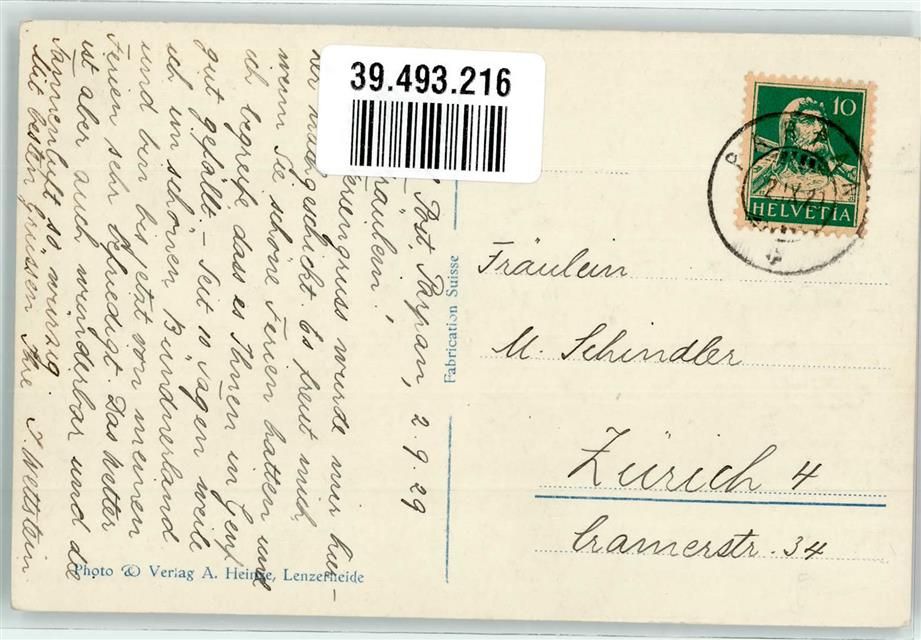 39.493.216
10
HELVETIA
Post Parpan, 2.9.29
Fräulein!
wurde mir hie-
her nachgeschickt. Es freut mich,
wenn Sie schöne Ferien hatten und
ich begreife, dass es Ihnen in Genf
gut gefällt. – Seit 10 Tagen weile
ich im schönen Bündnerland
und bin bis jetzt von meinen
Ferien sehr befriedigt. Das Wetter
ist aber auch wunderbar und die
Tannenluft so würzig.
Mit besten Grüssen Ihre J. Wettstein
Fabrication Suisse
Fräulein
M. Schindler
Zürich 4
Cramerstr. 34
Photo & Verlag A. Heinze, Lenzerheide